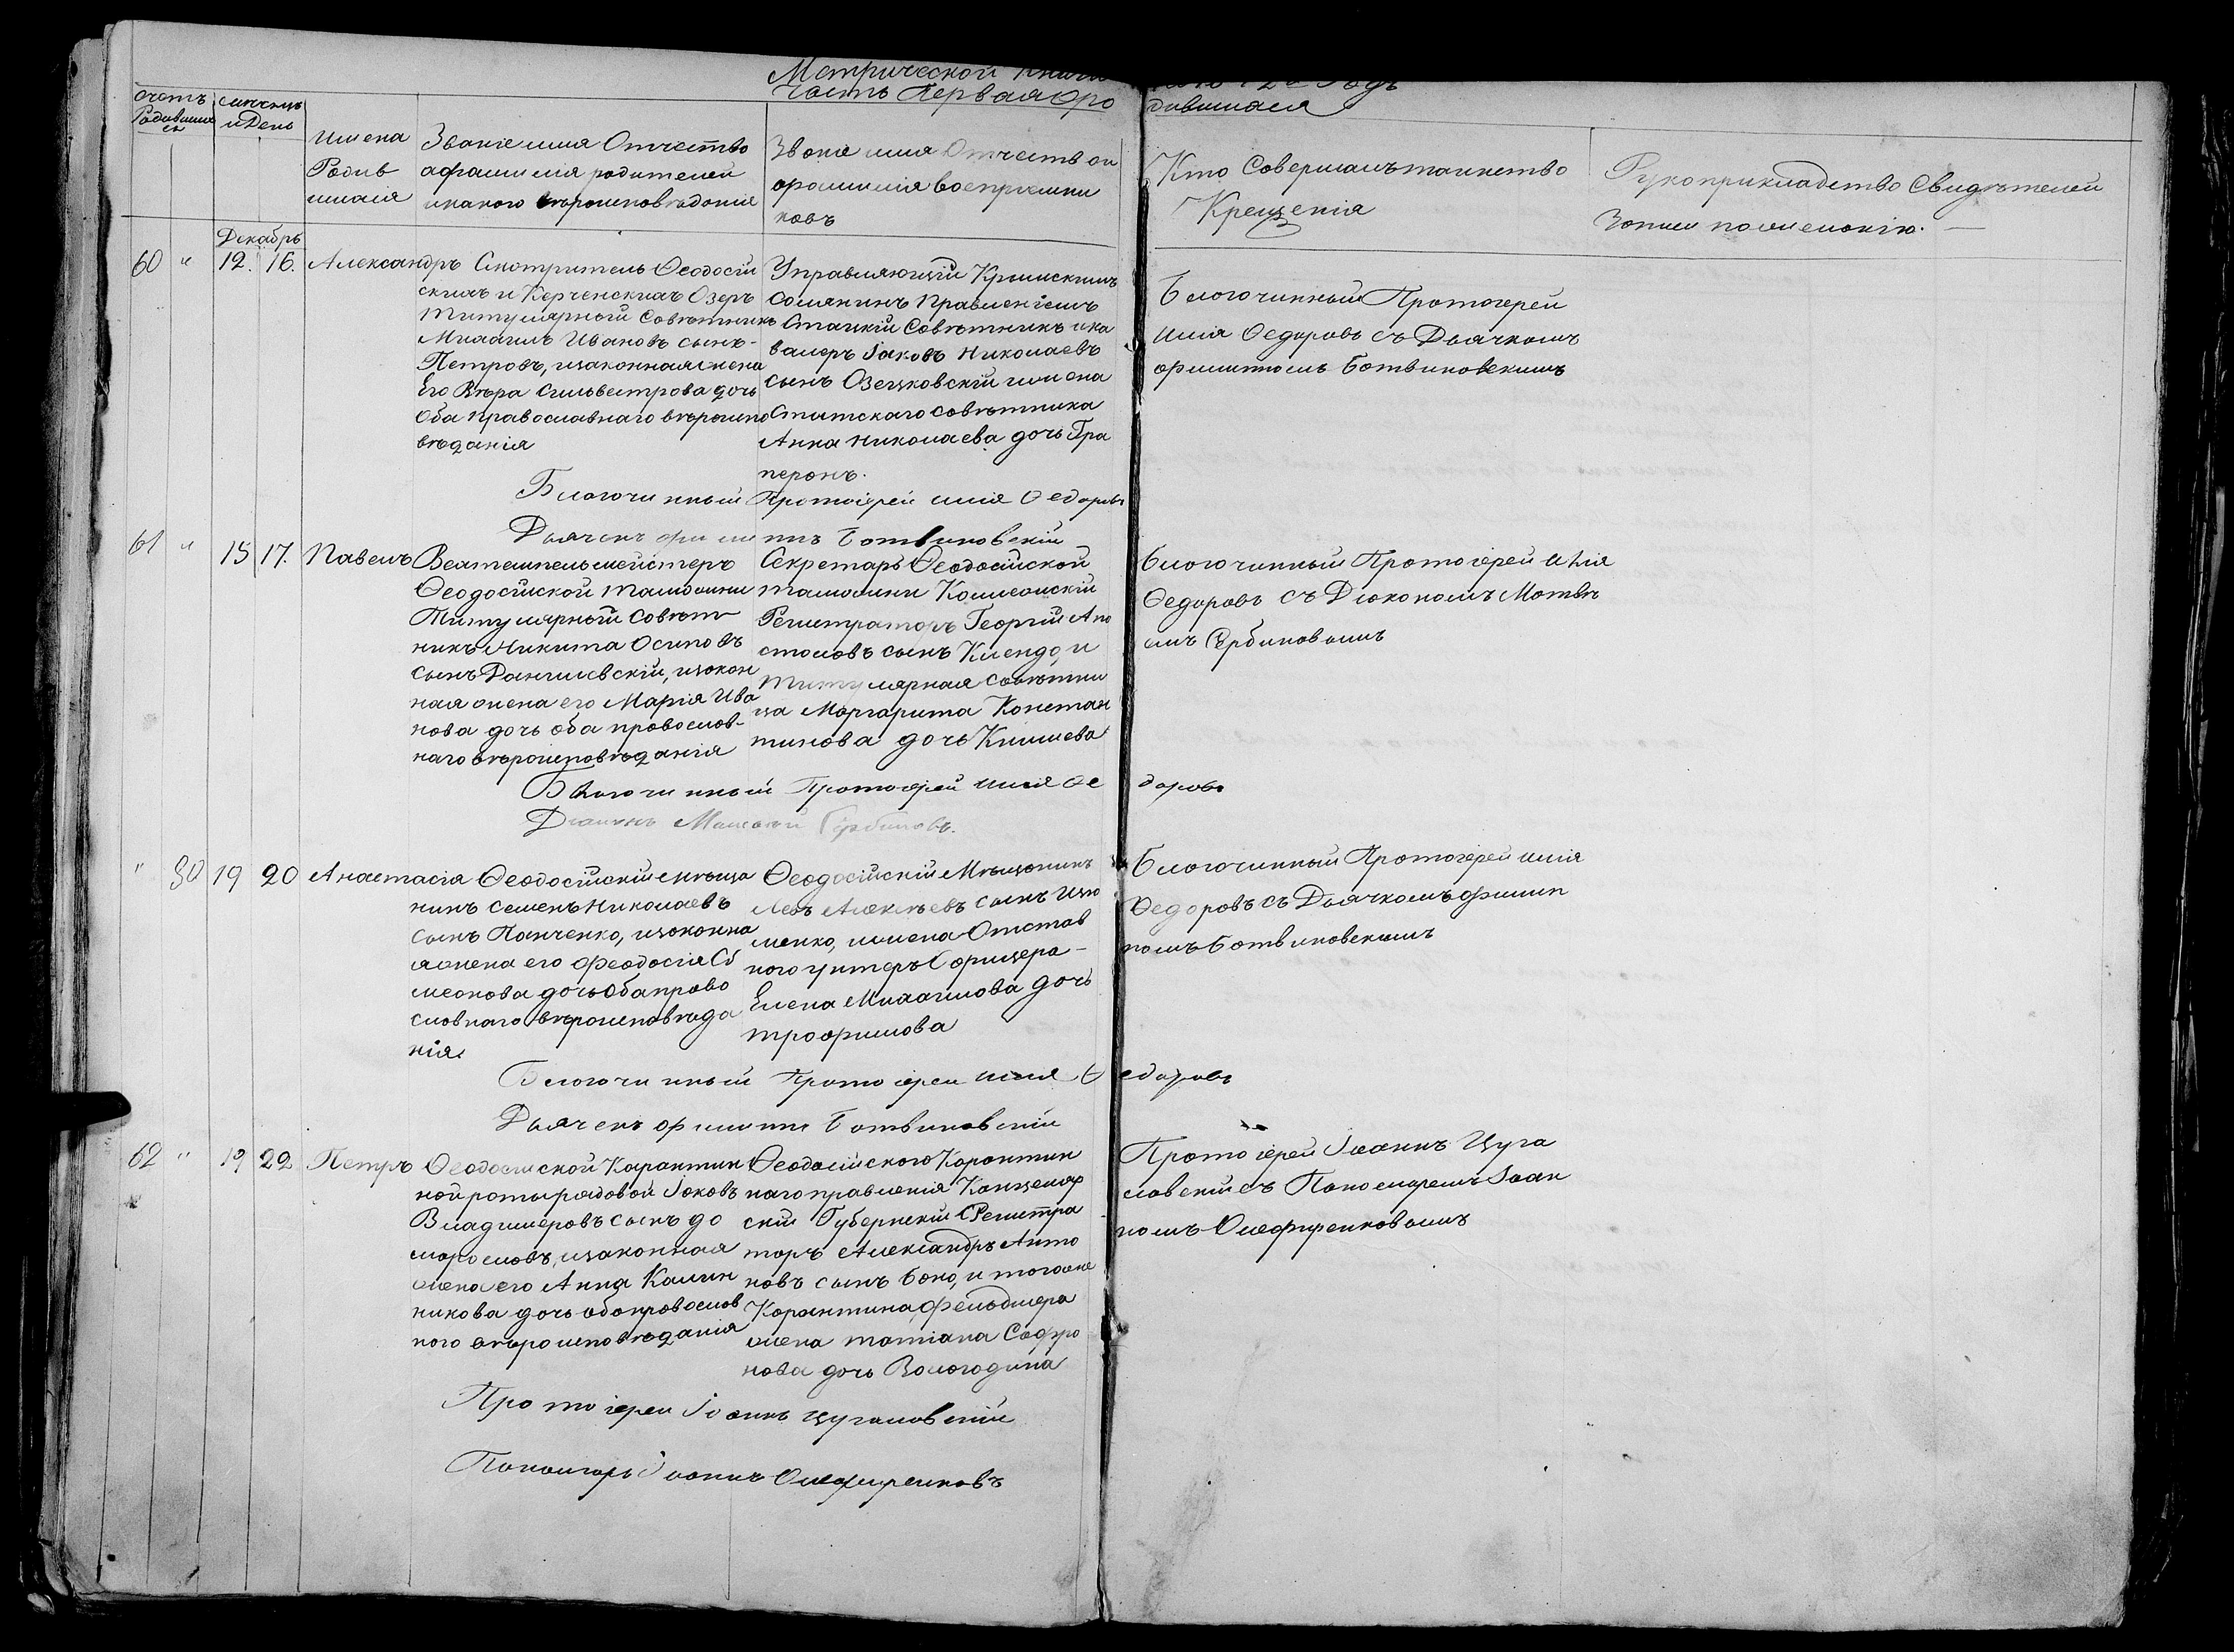 Метрической
Часть Первая Оро дившихся
Счетъ Родивших ся
Мѣсяцъ и День
Имена Родив шихся
Званіе имя Отчество
афамилія родителей
икакого вѣроисповѣданія
Званіе имя Отчество и
фамилія воспріемни
ковъ
Кто Совершалъ таинство
Крещенія
Рукоприкладство Свидѣтелей
Записи по желанію.
Декабрь
60 " 12. 16. Александръ
Смотритель Ѳеодосій
скихъ и Керченскихъ Озеръ
Титулярный Совѣтникъ
Михаилъ Ивановъ сынъ
Петровъ, изаконная жена
Его Вѣра Сильвестрова дочь
Оба православнаго вѣроиспо
вѣданія
Управляющій Крымскимъ
Солянымъ Правленіемъ
Статскій Совѣтникъ и ка
валеръ Іаковъ Николаевъ
сынъ Озецковскій и жена
Статскаго совѣтника
Анна Николаева дочь Гра
перонъ.
Благочинный Протоіерей
Илія Ѳедоровъ съ Дьячкомъ
Филиппомъ Ботвиновскимъ
Благочинный Протоіерей Илія Ѳедоровъ
Дьячекъ Филиппъ Ботвиновскій
61 " 15 17. Павелъ
Вагштемпельмейстеръ
Ѳеодосійской Таможни
Титулярный Совѣт
никъ Никита Осиповъ
сынъ Данилевскій, изакон
ная жена его Марія Ива
нова дочь оба православ
наго вѣроисповѣданія
Секретарь Ѳеодосійской
таможни Коллежскій
Регистраторъ Георгій Апо
столовъ сынъ и
Титулярная совѣтни
ца Маргарита Констан
тинова дочь
Благочинный Протоіерей Илія
Ѳедоровъ съ Діакономъ Матвѣ
емъ Сербиновымъ
Благочинный Протоіерей Илія Ѳе доровъ
Діаконъ Матѳей Сербиновъ.
" 50 19 20 Анастасія
Ѳеодосійскій мѣща
нинъ Семенъ Николаевъ
сынъ Панченко, изаконна
я жена его Феодосія Си
меонова дочь Оба право
славнаго вѣроисповѣда
нія.
Ѳеодосійскій Мѣщанинъ
Левъ Алексѣевъ сынъ Изю
менко, и жена Отстав
ного унтеръ Офицера
Елена Михаилова дочь
трофимова
Благочинный Протоіерей Илія
Ѳедоровъ съ Дьячкомъ Филип
помъ Ботвиновскимъ
Благочинный Протоіерей Илія Ѳ едоровъ
Дьячекъ Филиппъ Ботвиновскій
62 " 19 22 Петръ
Ѳеодосійской Карантин
ной роты рядовой Іаковъ
Владимеровъ сынъ до
морословъ, изаконная
жена его Анна Калин
никова дочь оба православ
ного вѣроисповѣданія
Ѳеодосійского Карантин
наго правленія Канцеляр
скій Губернскій Регистра
торъ Александръ Анто
новъ сынъ Боно, и тогоже
Карантина Фельдшера
жена татіана Софро
нова дочь Вологодина
Протоіерей Іоаннъ Цуга
ловскій съ Пономаремъ Іоан
номъ Олефиренковымъ
Протоіерей Іоаннъ Цугаловскій
Пономарь Іоаннъ Олефиренковъ